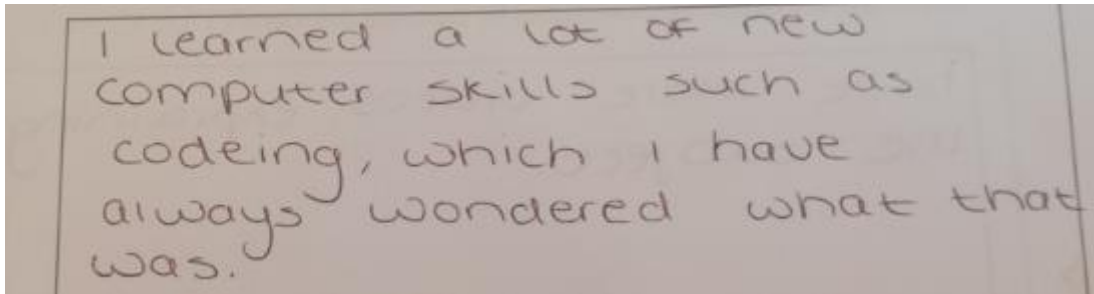 I learned a lot of new
computer skills such as
codeing, which I have
always wondered what that
was.